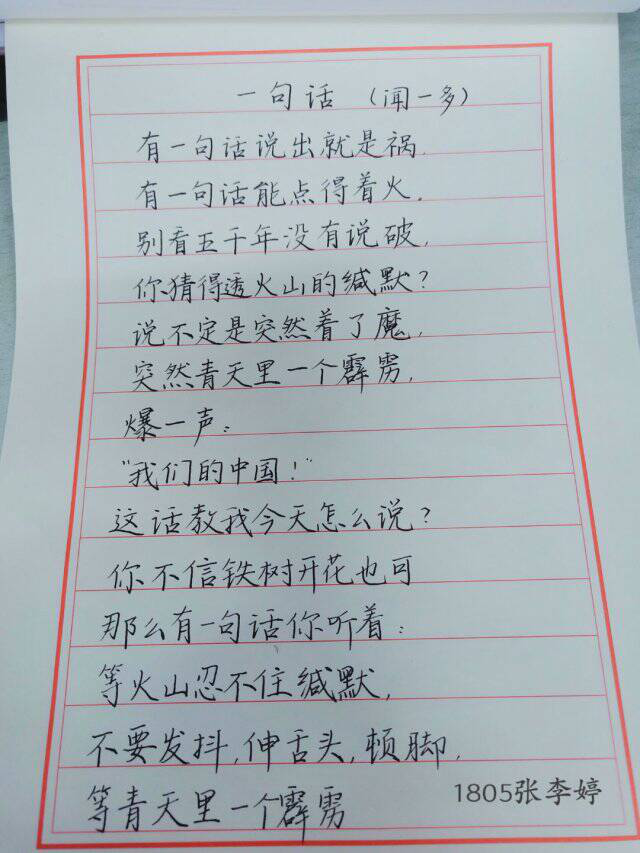 一句话 （闻一多）
有一句话说出就是祸，
有一句话能点得着火。
别看五千年没有说破，
你猜得透火山的缄默？
说不定是突然着了魔，
突然青天里一个霹雳，
爆一声：
“我们的中国！”
这话教我今天怎么说？
你不信铁树开花也可
那么有一句话你听着：
等火山忍不住缄默，
不要发抖，伸舌头，顿脚，
等青天里一个霹雳
1805张李婷